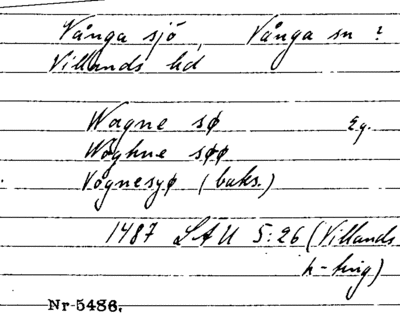 Vånga sjö, Vånga sn ?
Villands hd
Wogne sø Eg.
Woghne søø
Vognesyø (baks.)
1487 LAU 5:26 (Villands
h-ting)
Nr 5486.